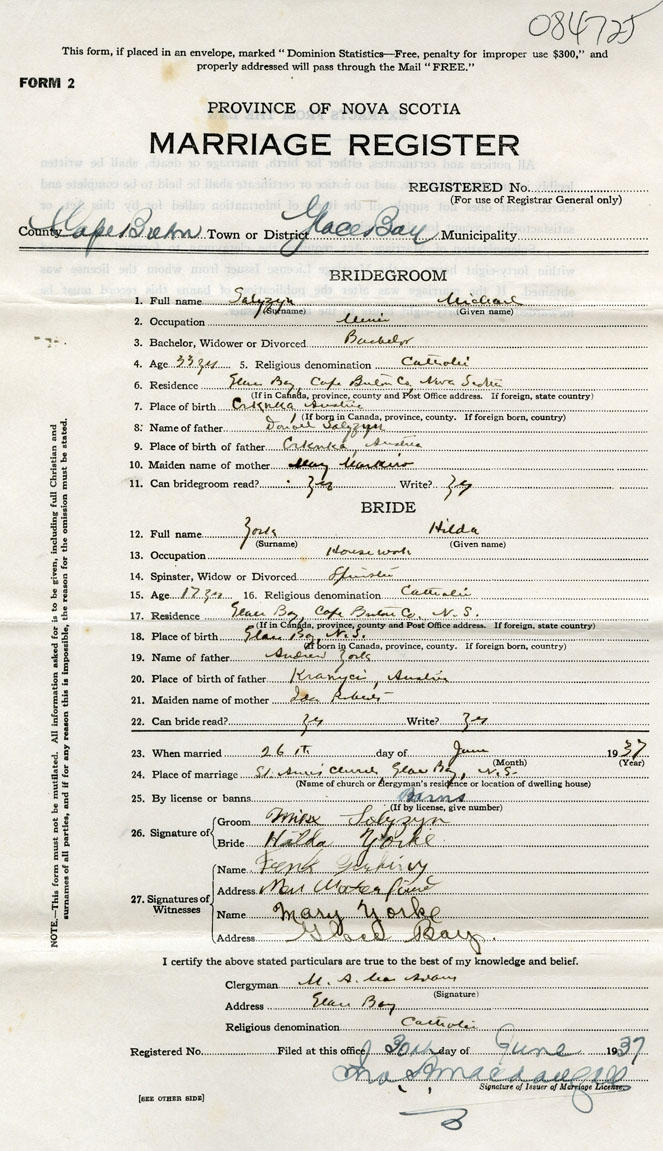 084725
This form, if placed in an envelope, marked "Dominion Statistics—Free, penalty for improper use $300," and
properly addressed will pass through the Mail "FREE."
FORM 2
PROVINCE OF NOVA SCOTIA
MARRIAGE REGISTER
REGISTERED No.
(For use of Registrar General only)
County Cape Breton Town or District Glace Bay Municipality
BRIDEGROOM
1. Full name Salyzyn Michael
(Surname) (Given name)
2. Occupation Miner
3. Bachelor, Widower or Divorced Bachelor
4. Age 33 yrs 5. Religious denomination Catholic
6. Residence Glace Bay, Cape Breton Co, Nova Scotia
(If in Canada, province, county and Post Office address. If foreign, state country)
7. Place of birth Austria
(If born in Canada, province, county. If foreign born, country)
8. Name of father Salyzyn
9. Place of birth of father Austria
10. Maiden name of mother Mary
11. Can bridegroom read? Yes Write? Yes
BRIDE
12. Full name York Hilda
(Surname) (Given name)
13. Occupation Housework
14. Spinster, Widow or Divorced Spinster
15. Age 17 yrs 16. Religious denomination Catholic
17. Residence Glace Bay, Cape Breton Co, N. S.
(If in Canada, province, county and Post Office address. If foreign, state country)
18. Place of birth Glace Bay, N. S.
(If born in Canada, province, county. If foreign born, country)
19. Name of father Andrew York
20. Place of birth of father Austria
21. Maiden name of mother Roberts
22. Can bride read? Yes Write? Yes
23. When married 26th day of June 1937
(Month) (Year)
24. Place of marriage St. Anns Church, Glace Bay, N. S.
(Name of church or clergymen's residence or location of dwelling house)
25. By license or banns Banns
(If by license, give number)
26. Signature of Groom Mike Solyzyn
Bride Hilda Yorke
27. Signatures of Witnesses
Name
Address New Waterford
Name Mary Yorke
Address Glace Bay.
I certify the above stated particulars are true to the best of my knowledge and belief.
Clergyman M. A.
(Signature)
Address Glace Bay
Religious denomination Catholic
Registered No. Filed at this office 30th day of June 1937
Signature of Issuer of Marriage License.
[SEE OTHER SIDE]
NOTE.—This form must not be mutilated. All information asked for is to be given, including full Christian and
surnames of all parties, and if for any reason this is impossible, the reason for the omission must be stated.